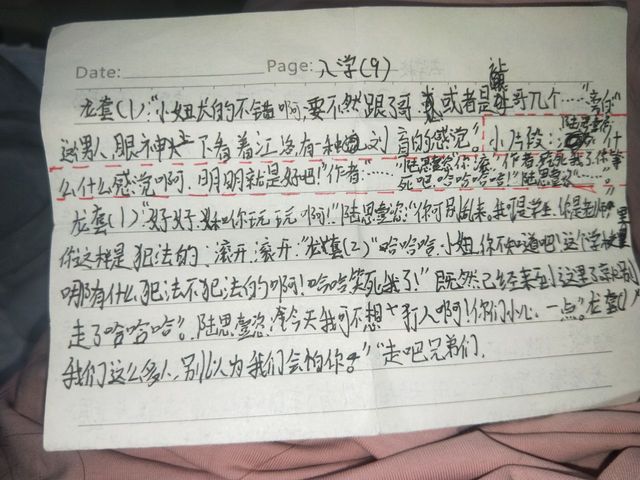 Date: Page: 入学(9)
龙套(1):"小妞长的不错啊,要不然跟哥 或者是哥几个……"旁白"
这男人眼神上下看着江洛有一种 的感觉。 小片段:陆思壹
么什么感觉啊.明明就是好吧!"作者:"…… 陆思壹你 "作者
死吧.哈哈哈哈!"陆思壹
龙套(1)"好好.妹你玩玩啊!"陆思壹恣:"你可别乱来.我可是学生.你是
你这样是犯法的;滚开.滚开."龙套(2)"哈哈哈.小妞.你不知道吧!这个学校里
哪有什么犯法不犯法的啊!哈哈笑死我了!"既然已经来到这里了就别
走了哈哈哈"。陆思壹恣 今天我可不想 打人啊!你们小心一点"。龙套(1)
我们这么多人,别以为我们会怕你。""走吧兄弟们.